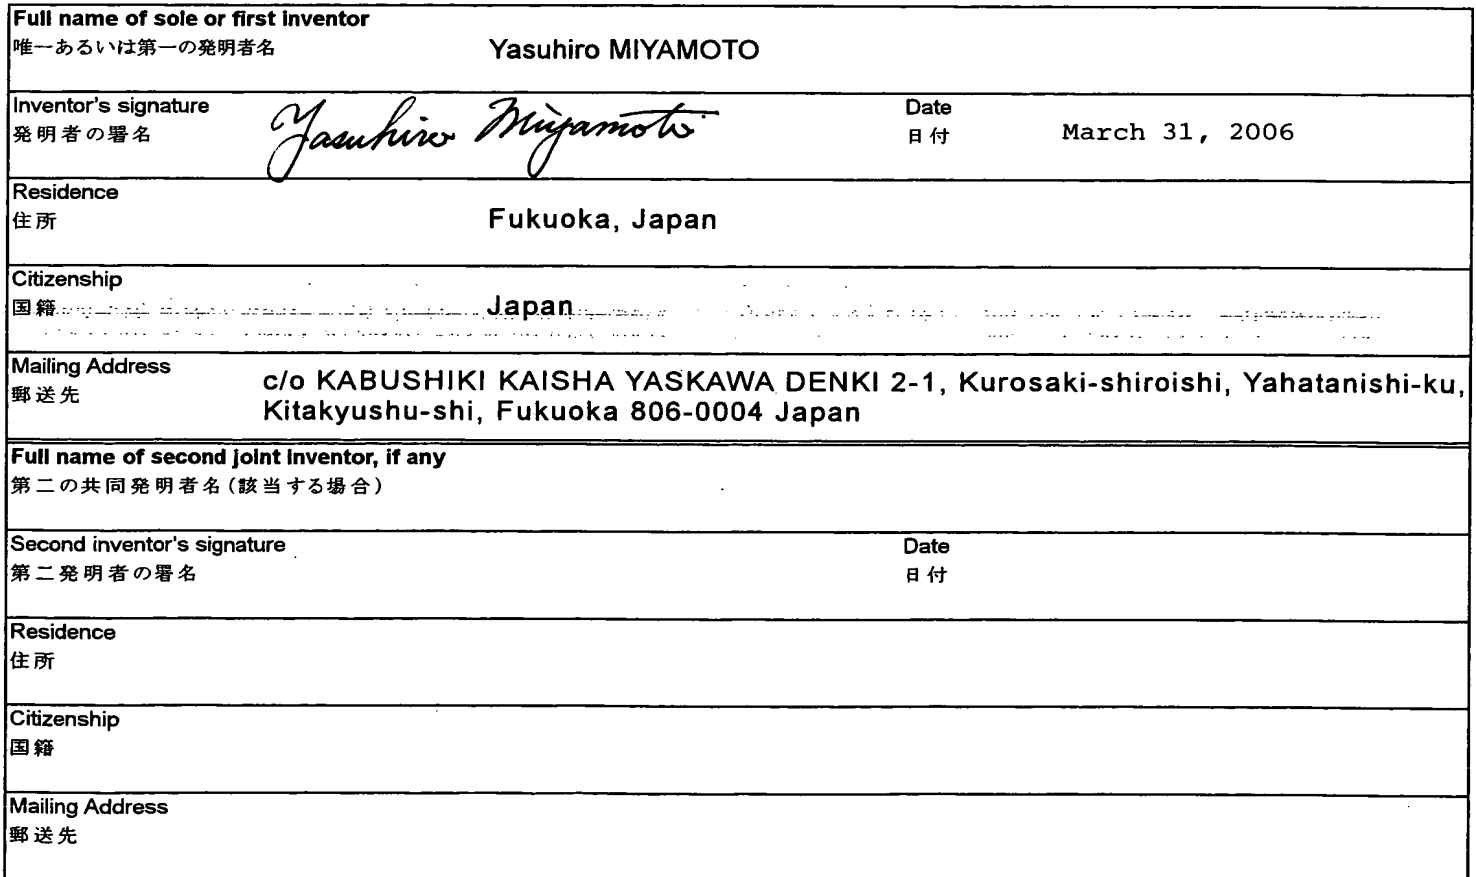 Full name of sole or first inventor
唯一あるいは第一の発明者名
Yasuhiro MIYAMOTO
Inventor's signature
発明者の署名
Yasuhiro Miyamoto
Date
日付
March 31, 2006
Residence
住所
Fukuoka, Japan
Citizenship
国籍
Japan
Mailing Address
郵送先
c/o KABUSHIKI KAISHA YASKAWA DENKI 2-1, Kurosaki-shiroishi, Yahatanishi-ku,
Kitakyushu-shi, Fukuoka 806-0004 Japan
Full name of second joint inventor, if any
第二の共同発明者名（該当する場合）
Second inventor's signature
第二発明者の署名
Date
日付
Residence
住所
Citizenship
国籍
Mailing Address
郵送先